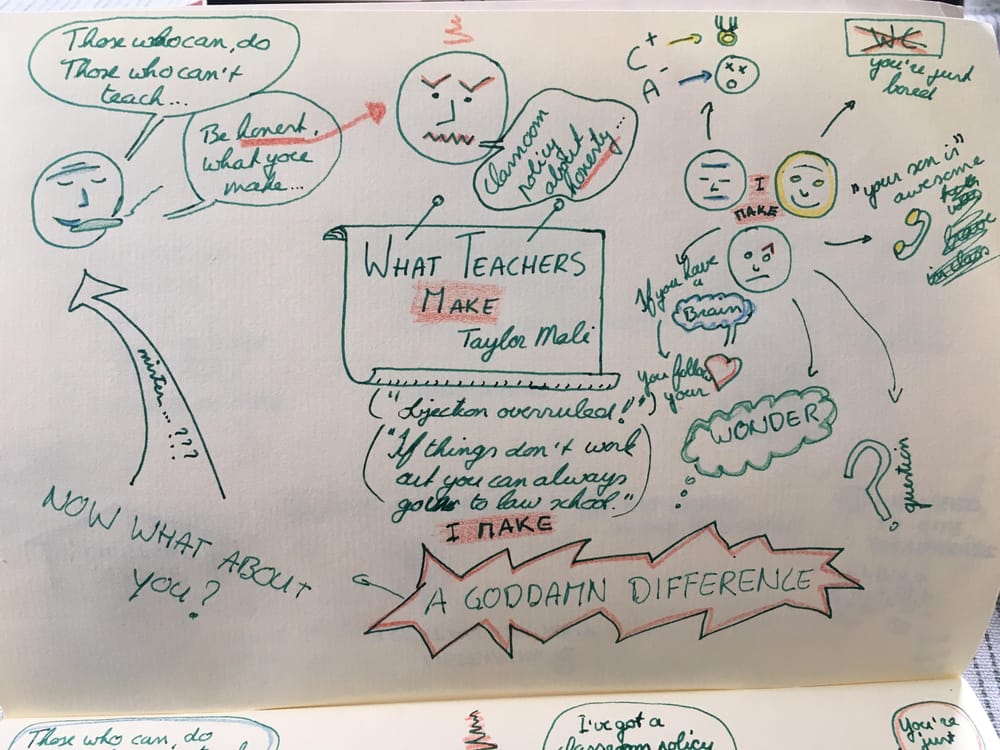 Those who can, do
Those who can't
teach...
Be honest.
what you
make...
classroom
policy
about
honesty...
C+
A-
WC
you're just
bored
I
MAKE
"your son is"
awesome
WHAT TEACHERS
MAKE
Taylor Mali
If you have a
Brain
you follow
your
("Objection overruled!")
("If things don't work
out you can always
go to law school.")
WONDER
question
I MAKE
A GODDAMN DIFFERENCE
NOW WHAT ABOUT
YOU?
mister...???
Those who can, do
I've got a
classroom policy
You're
just